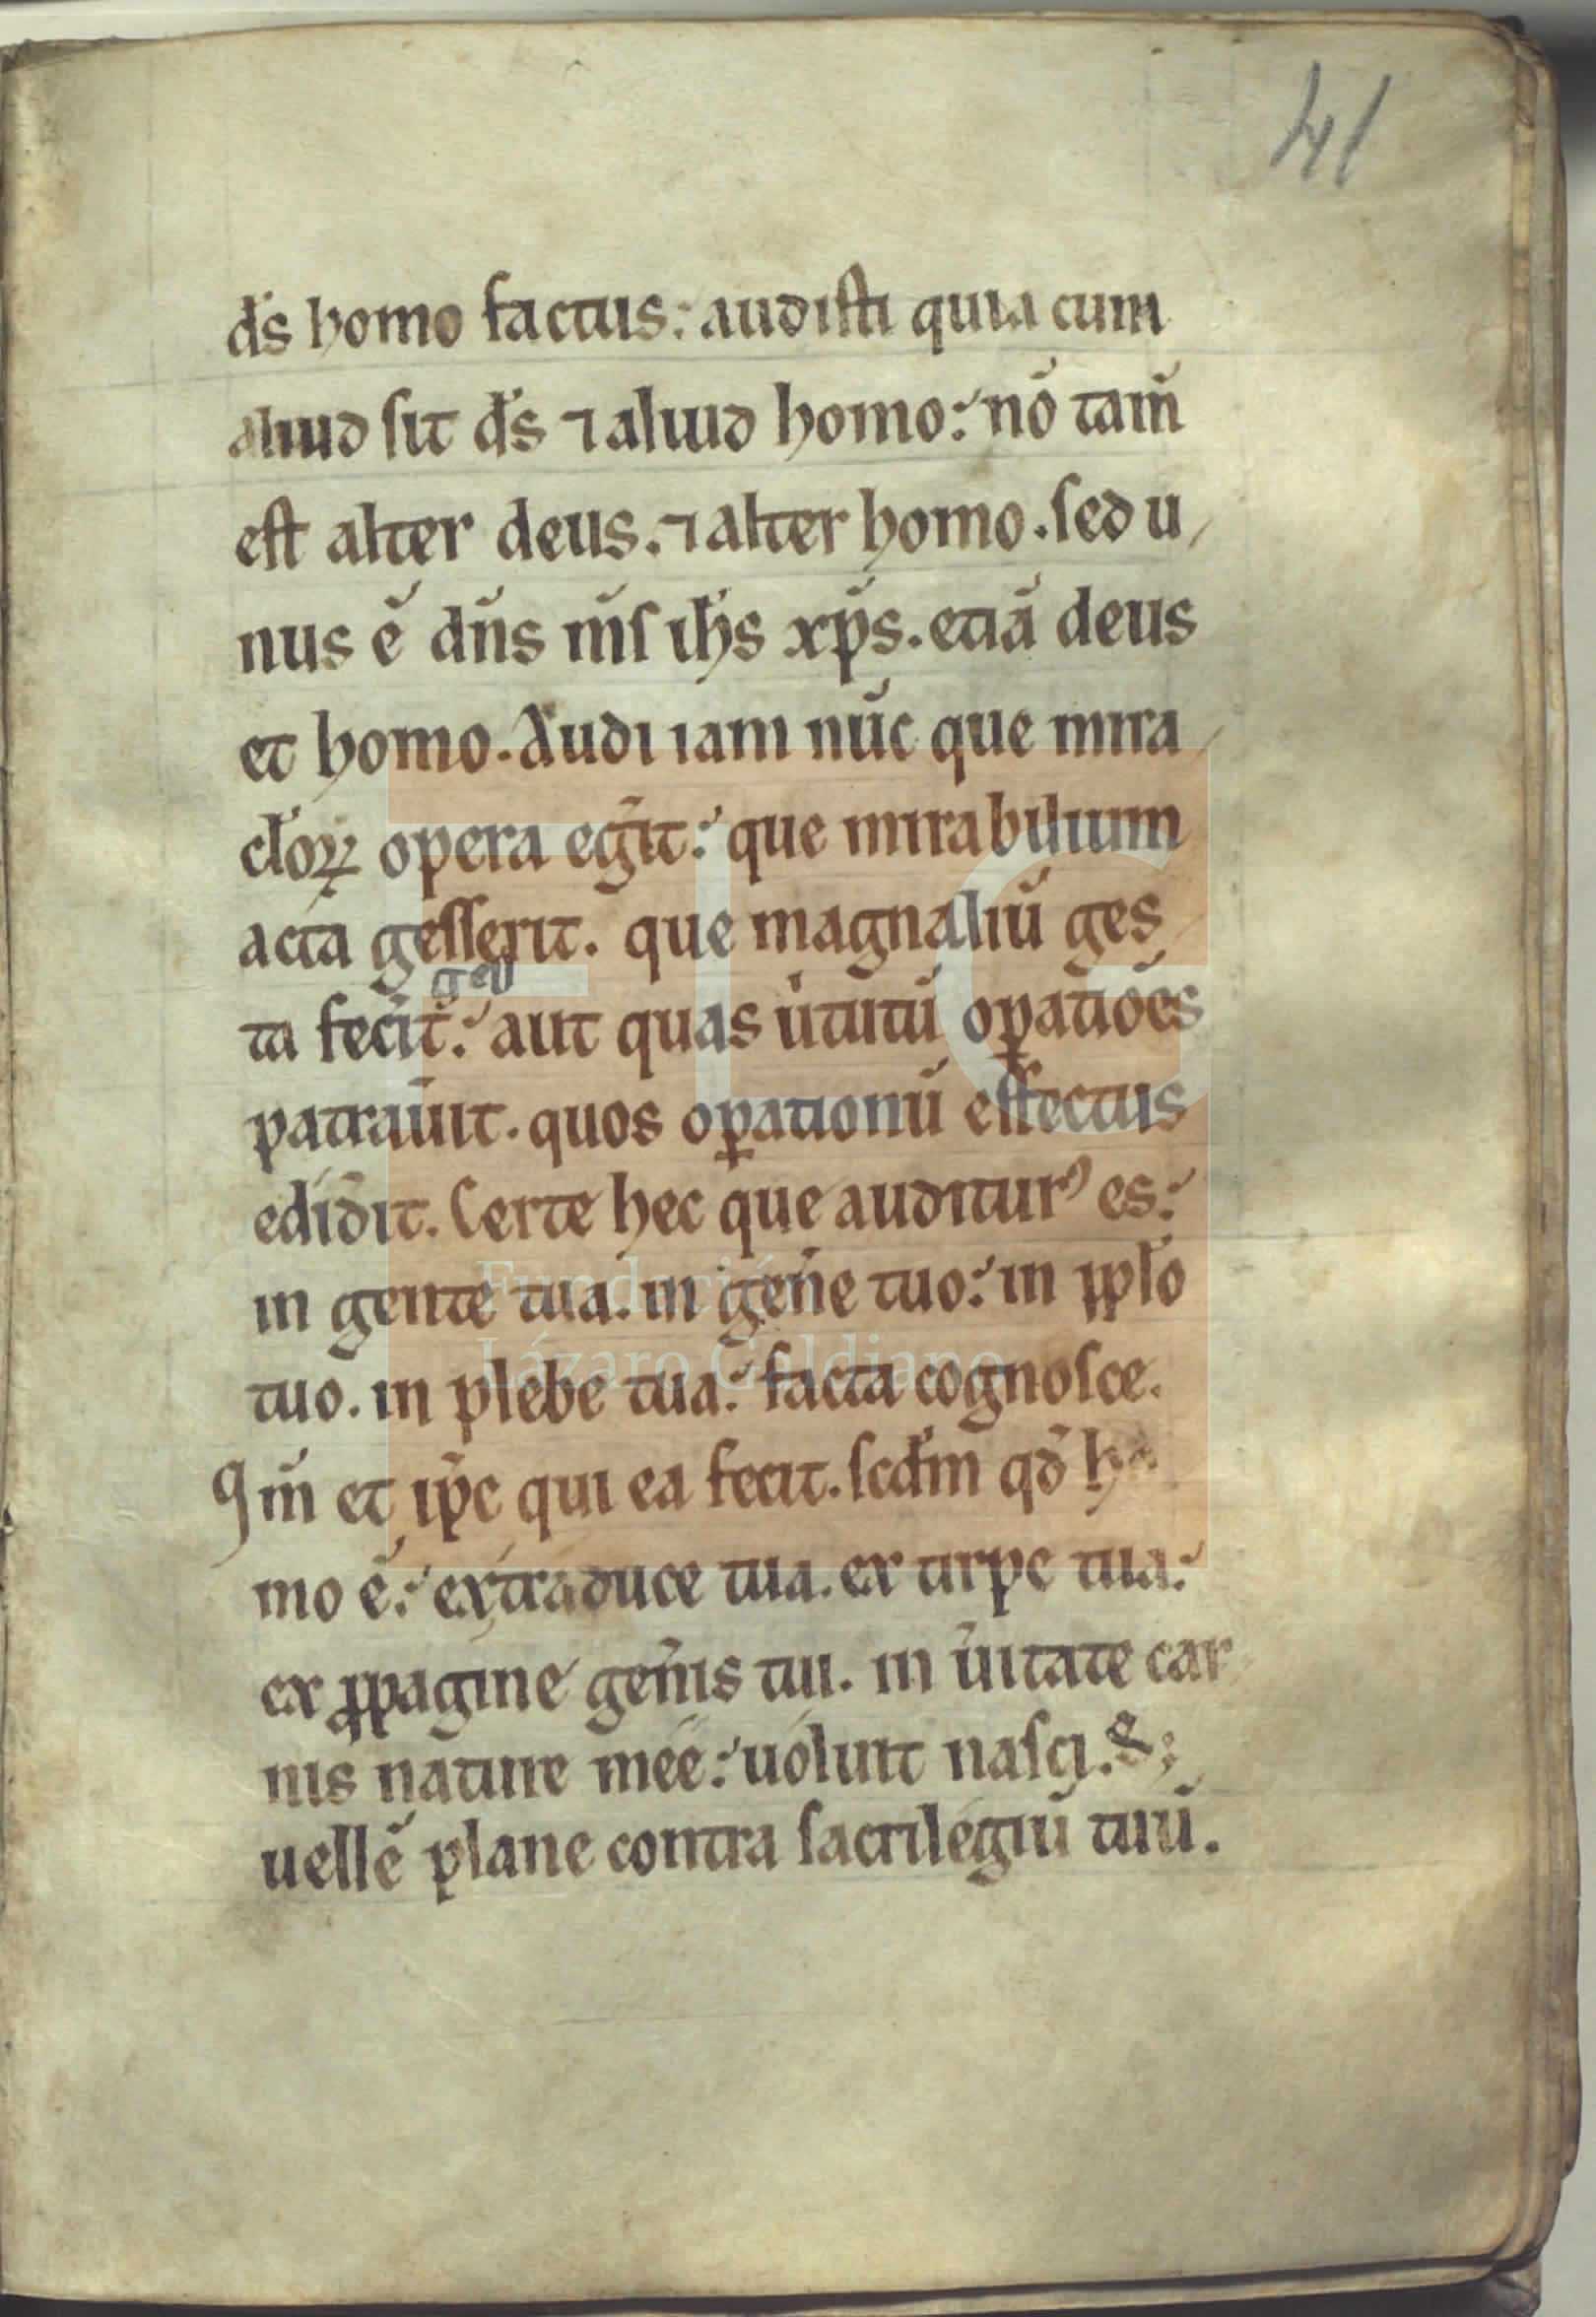 41
dẽs homo factus: audisti quia cum
aliud sit dẽs ⁊ aliud homo: nõ tam̃
est alter deus. ⁊ alter homo. sed u,
nus ẽ dñs nr̃s ih̃s xp̃s. etiã deus
et homo. Audi iam nũc que mira
cl̃oꝝ opera eg̃it: que mirabilium
acta gesserit. que magnaliũ ges
ta fec̃it: aut quas ũtutũ oꝑatiões
patraũit. quos oꝑationũ effectus
edid̃it. Certe hec que auditurꝰ es:
in gente tua. in geñe tuo: in ip̃lo
tuo. in plebe tua: facta cognosce.
Qm̃ et ip̃e qui ea fecit. scd̃m qđ ho
mo ẽ: ex traduce tua. ex tirpe tua:
ex ꝓpagine geñis tui. in ũitate car
nis nature mee: uoluit nasci. &;
uellẽ plane contra sacrilegiũ tuũ.
Fundación
Lázaro Galdiano